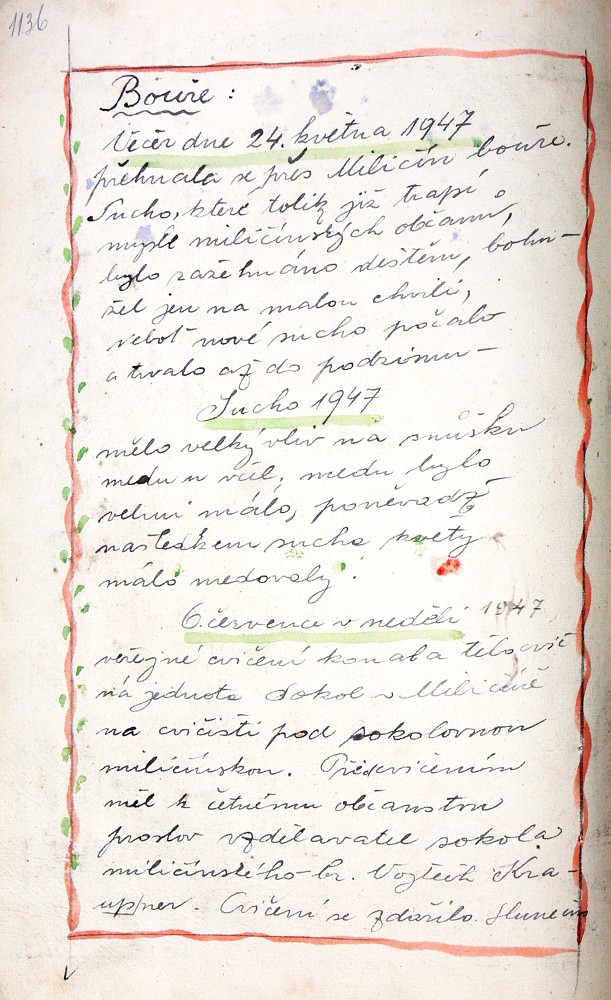 1136
Bouře:
Večer dne 24. května 1947
přehnala se přes Miličín bouře.
Sucho, které tolik již trapí
mysle miličínských občanů,
bylo zažehnáno deštěm, bohu-
žel jen na malou chvíli,
neboť nové sucho počalo
a trvalo až do podzimu-
Sucho 1947
mělo velký vliv na snůšku
medu u včel, medu bylo
velmi málo, poněvadž
následkem sucha květy
málo medovaly.
6. července v neděli 1947
veřejné cvičení konala tělocvič
ná jednota Sokol v Miličíně
na cvičišti pod sokolovnou
miličínskou. Před cvičením
měl k četnému občanstvu
proslov vzdělavatel sokola
miličínského-br. Vojtěch Kra-
upner. Cvičení se zdařilo.